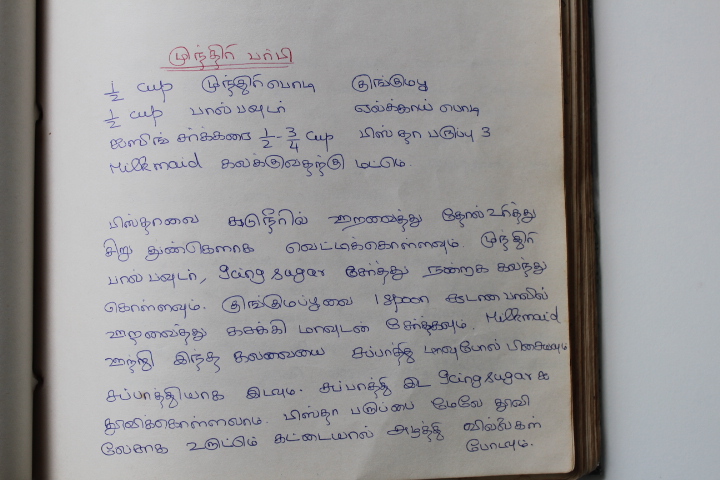 முந்திரி பர்பி
1/2 cup முந்திரி பொடி குங்குமபூ
1/2 cup பால் பவுடர் ஏலக்காய் பொடி
ஐஸிங் சர்க்கரை 1/2 - 3/4 cup பிஸ்தா பருப்பு 3
Milkmaid கலக்குவதற்கு மட்டும்.
பிஸ்தாவை சுடுநீரில் ஊறவைத்து தோல் உரித்து
சிறு துண்களாக வெட்டிக்கொள்ளவும். முந்திரி
பால் பவுடர், Icing sugar சேர்த்து நன்றாக கலந்து
கொள்ளவும். குங்குமப்பூவை 1 spoon சூடான பாலில்
ஊறவைத்து கசக்கி மாவுடன் சேர்க்கவும். Milkmaid
ஊற்றி இந்த கலவையை சப்பாத்தி மாவுபோல் பிசையவும்
சப்பாத்தியாக இடவும். சப்பாத்தி இட Icing sugar ஐ
தூவிக்கொள்ளலாம். பிஸ்தா பருப்பை மேலே தூவி
லேசாக உருட்டும் கட்டையால் அழுத்தி வில்லைகள்
போடவும்.